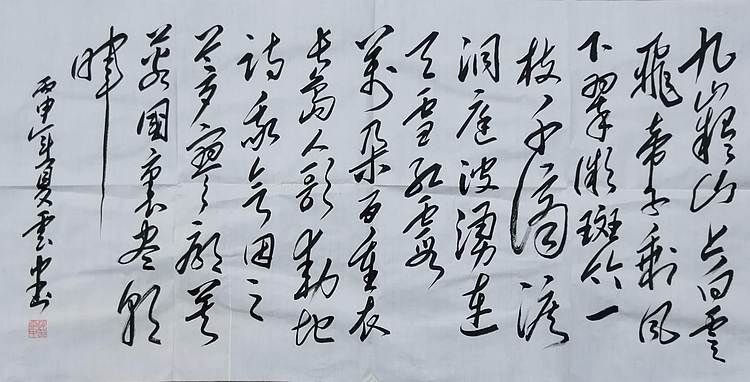 九嶷山上白雲
飛帝子剩風
下翠微斑竹一
枝千滴淚
洞庭波湧連
天雪紅霞
萬朵百重衣
長島人歌動地
詩我欲因之
夢寥廓芙
蓉國裏盡朝
暉
丙申年夏雲書